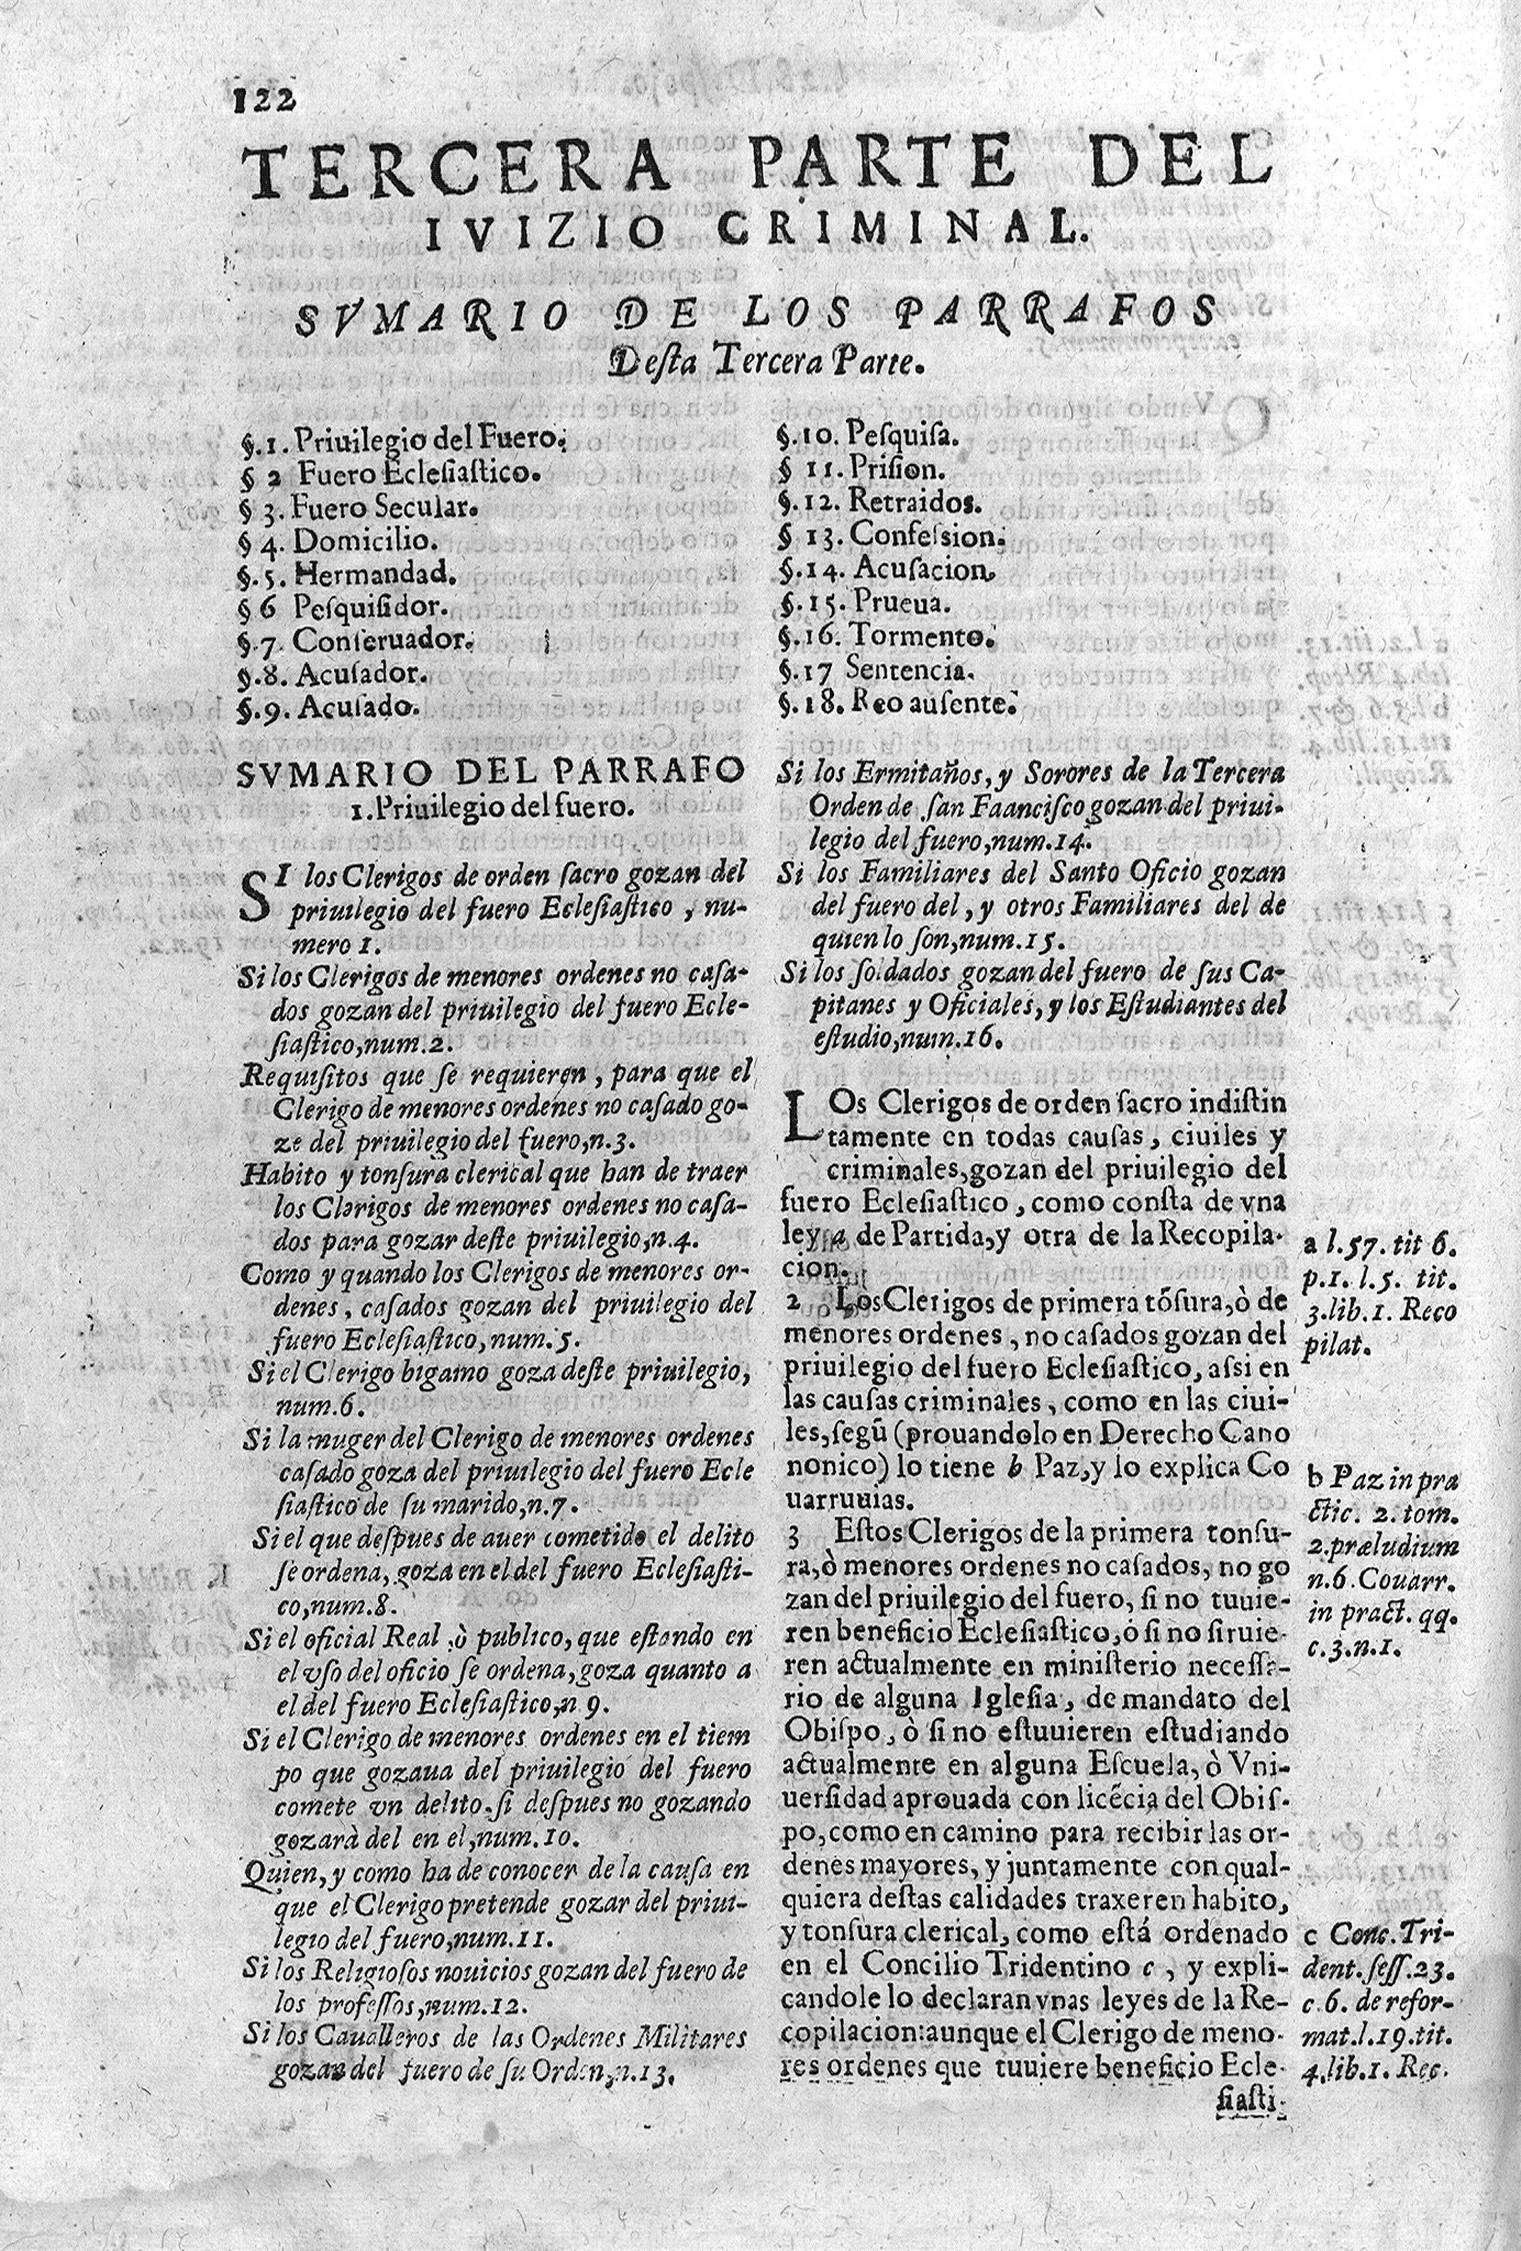 122
TERCERA PARTE DEL
IVIZIO CRIMINAL.
SVMARIO DE LOS PARRAFOS
Desta Tercera Parte.
§.1. Priuilegio del Fuero.
§ 2 Fuero Eclesiastico.
§ 3. Fuero Secular.
§ 4. Domicilio.
§.5. Hermandad.
§ 6 Pesquisidor.
§.7. Conseruador.
§.8. Acusador.
§.9. Acusado.
§.10. Pesquisa.
§ 11. Prision.
§.12. Retraidos.
§ 13. Confession.
§.14. Acusacion.
§.15. Prueua.
§.16. Tormento.
§.17 Sentencia.
§.18. Reo ausente.
SVMARIO DEL PARRAFO
1.Priuilegio del fuero.
SI los Clerigos de orden sacro gozan del
priuilegio del fuero Eclesiastico, nu-
mero 1.
Si los Clerigos de menores ordenes no casa-
dos gozan del priuilegio del fuero Ecle-
siastico,num.2.
Requisitos que se requieren, para que el
Clerigo de menores ordenes no casado go-
ze del priuilegio del fuero,n.3.
Habito y tonsura clerical que han de traer
los Clerigos de menores ordenes no casa-
dos para gozar deste priuilegio,n.4.
Como y quando los Clerigos de menores or-
denes, casados gozan del priuilegio del
fuero Eclesiastico,num.5.
Si el Clerigo bigamo goza deste priuilegio,
num.6.
Si la muger del Clerigo de menores ordenes
casado goza del priuilegio del fuero Ecle
siastico de su marido,n.7.
Si el que despues de auer cometido el delito
se ordena, goza en el del fuero Eclesiasti-
co,num.8.
Si el oficial Real,ò publico,que estando en
el vso del oficio se ordena,goza quanto a
el del fuero Eclesiastico,n 9.
Si el Clerigo de menores ordenes en el tiem
po que gozaua del priuilegio del fuero
comete vn delito,si despues no gozando
gozarà del en el,num.10.
Quien,y como ha de conocer de la causa en
que el Clerigo pretende gozar del priui-
legio del fuero,num.11.
Si los Religiosos nouicios gozan del fuero de
los professos,num.12.
Si los Caualleros de las Ordenes Militares
gozan del fuero de su Orden,n.13.
Si los Ermitaños,y Sorores de la Tercera
Orden de san Faancisco gozan del priui-
legio del fuero,num.14.
Si los Familiares del Santo Oficio gozan
del fuero del,y otros Familiares del de
quien lo son,num.15.
Si los soldados gozan del fuero de sus Ca-
pitanes y Oficiales,y los Estudiantes del
estudio,num.16.
LOs Clerigos de orden sacro indistin
tamente en todas causas, ciuiles y
criminales,gozan del priuilegio del
fuero Eclesiastico, como consta de vna
ley a de Partida,y otra de la Recopila-
cion.
2 Los Clerigos de primera tõsura,ò de
menores ordenes, no casados gozan del
priuilegio del fuero Eclesiastico, assi en
las causas criminales, como en las ciui-
les,segũ (prouandolo en Derecho Cano
nonico) lo tiene b Paz,y lo explica Co
uarruuias.
3 Estos Clerigos de la primera tonsu-
ra,ò menores ordenes no casados, no go
zan del priuilegio del fuero, si no tuuie-
ren beneficio Eclesiastico,ò si no siruie-
ren actualmente en ministerio necessa-
rio de alguna Iglesia, de mandato del
Obispo, ò si no estuuieren estudiando
actualmente en alguna Escuela, ò Vni-
uersidad aprouada con licẽcia del Obis-
po,como en camino para recibir las or-
denes mayores, y juntamente con qual-
quiera destas calidades traxeren habito,
y tonsura clerical, como está ordenado
en el Concilio Tridentino c, y expli-
candole lo declaran vnas leyes de la Re-
copilacion:aunque el Clerigo de meno-
res ordenes que tuuiere beneficio Ecle-
siasti-
a l.57. tit 6.
p.1. l.5. tit.
3.lib.1. Reco
pilat.
b Paz in pra
ctic. 2. tom.
2.præludium
n.6.Couarr.
in pract. qq.
c.3.n.1.
c Conc.Tri-
dent.sess.23.
c.6. de refor-
mat.l.19.tit.
4.lib.1. Rec.